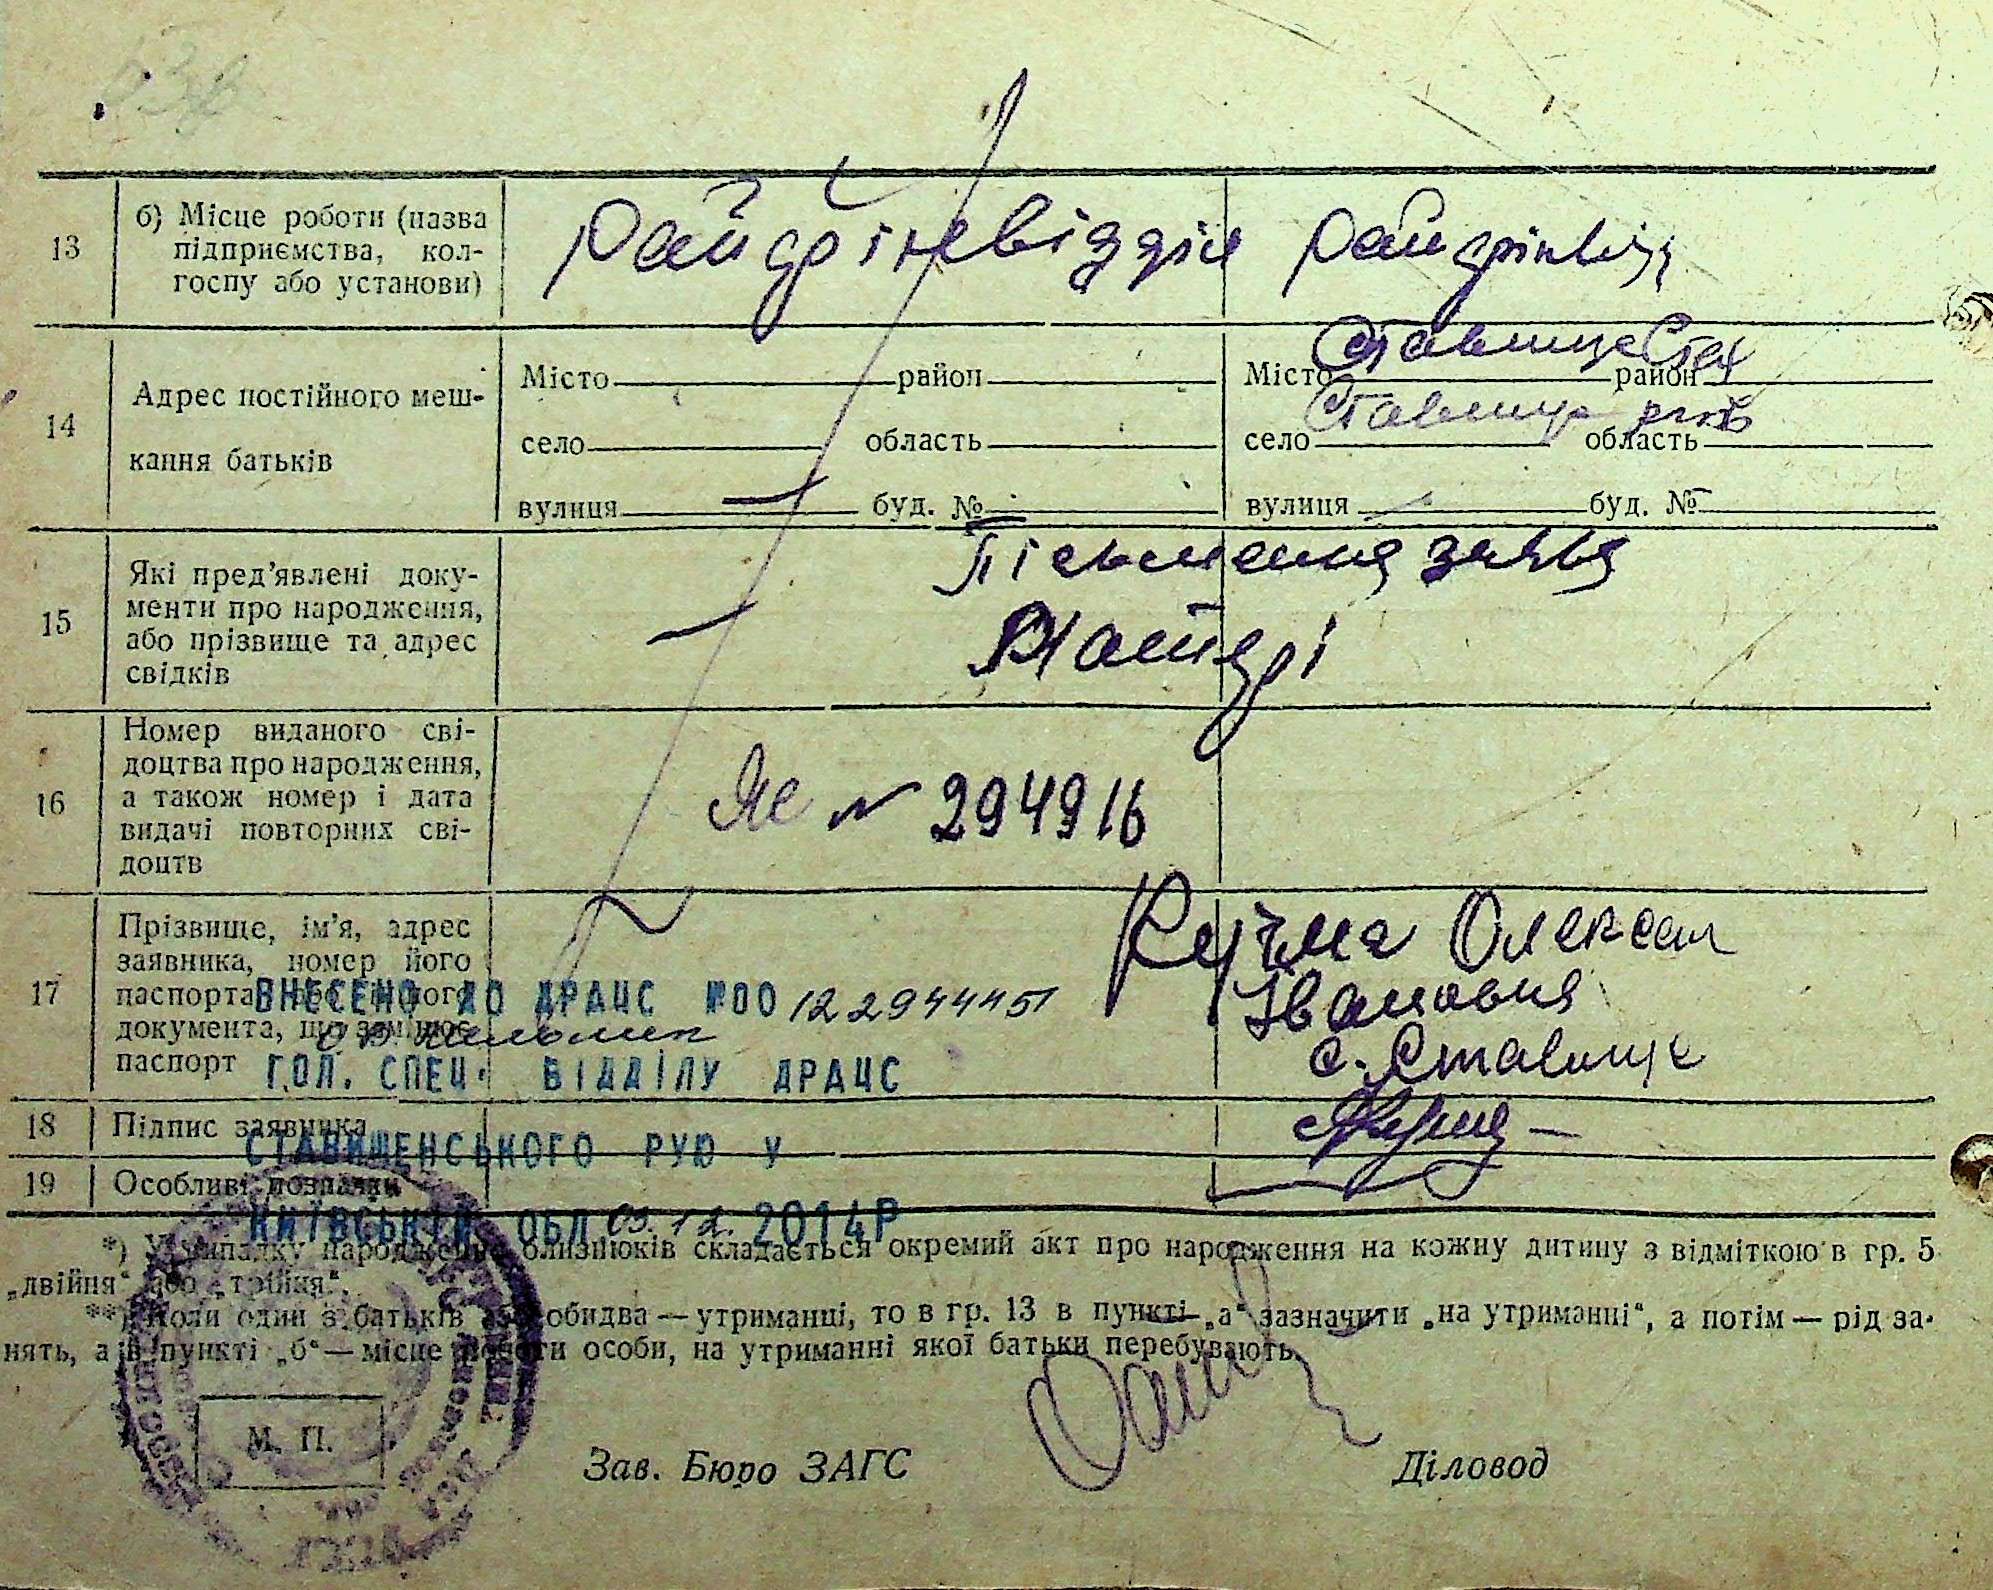 13
б) Місце роботи (назва
підприємства, кол-
госпу або установи)
Райфінвідділ
Райфінвід
14
Адрес постійного меш-
кання батьків
Місто район
село область
вулиця — буд. № —
Ставище Став
Місто район
Ставище
село область
вулиця — буд. №
15
Які пред’явлені доку-
менти про народження,
або прізвище та адрес
свідків
—
Пісьменна заява
Матері
16
Номер виданого сві-
доцтва про народження,
а також номер і дата
видачі повторних сві-
доцтв
№ 294916
17
Прізвище, ім’я, адрес
заявника, номер його
паспорта або іншого
документа, що замінює
паспорт
Кучма Олексан
Івановна
с. Ставище
ВНЕСЕНО ДО ДРАЦС №00 12294451
ГОЛ. СПЕЦ. ВІДДІЛУ ДРАЦС
18
Підпис заявника
СТАВИЩЕНСЬКОГО РУЮ У
19
Особливі познаки
КИЇВСЬКІЙ ОБЛ 03.12.2014Р
*) У випадку народження близнюків складається окремий акт про народження на кожну дитину з відміткою в гр. 5
„двійня“ або „трійня“.
**) Коли один з батьків або обидва — утриманці, то в гр. 13 в пункті „а“ зазначити „на утриманні“, а потім — рід за-
нять, а в пункті „б“ — місце роботи особи, на утриманні якої батьки перебувають.
М. П.
Зав. Бюро ЗАГС
Діловод